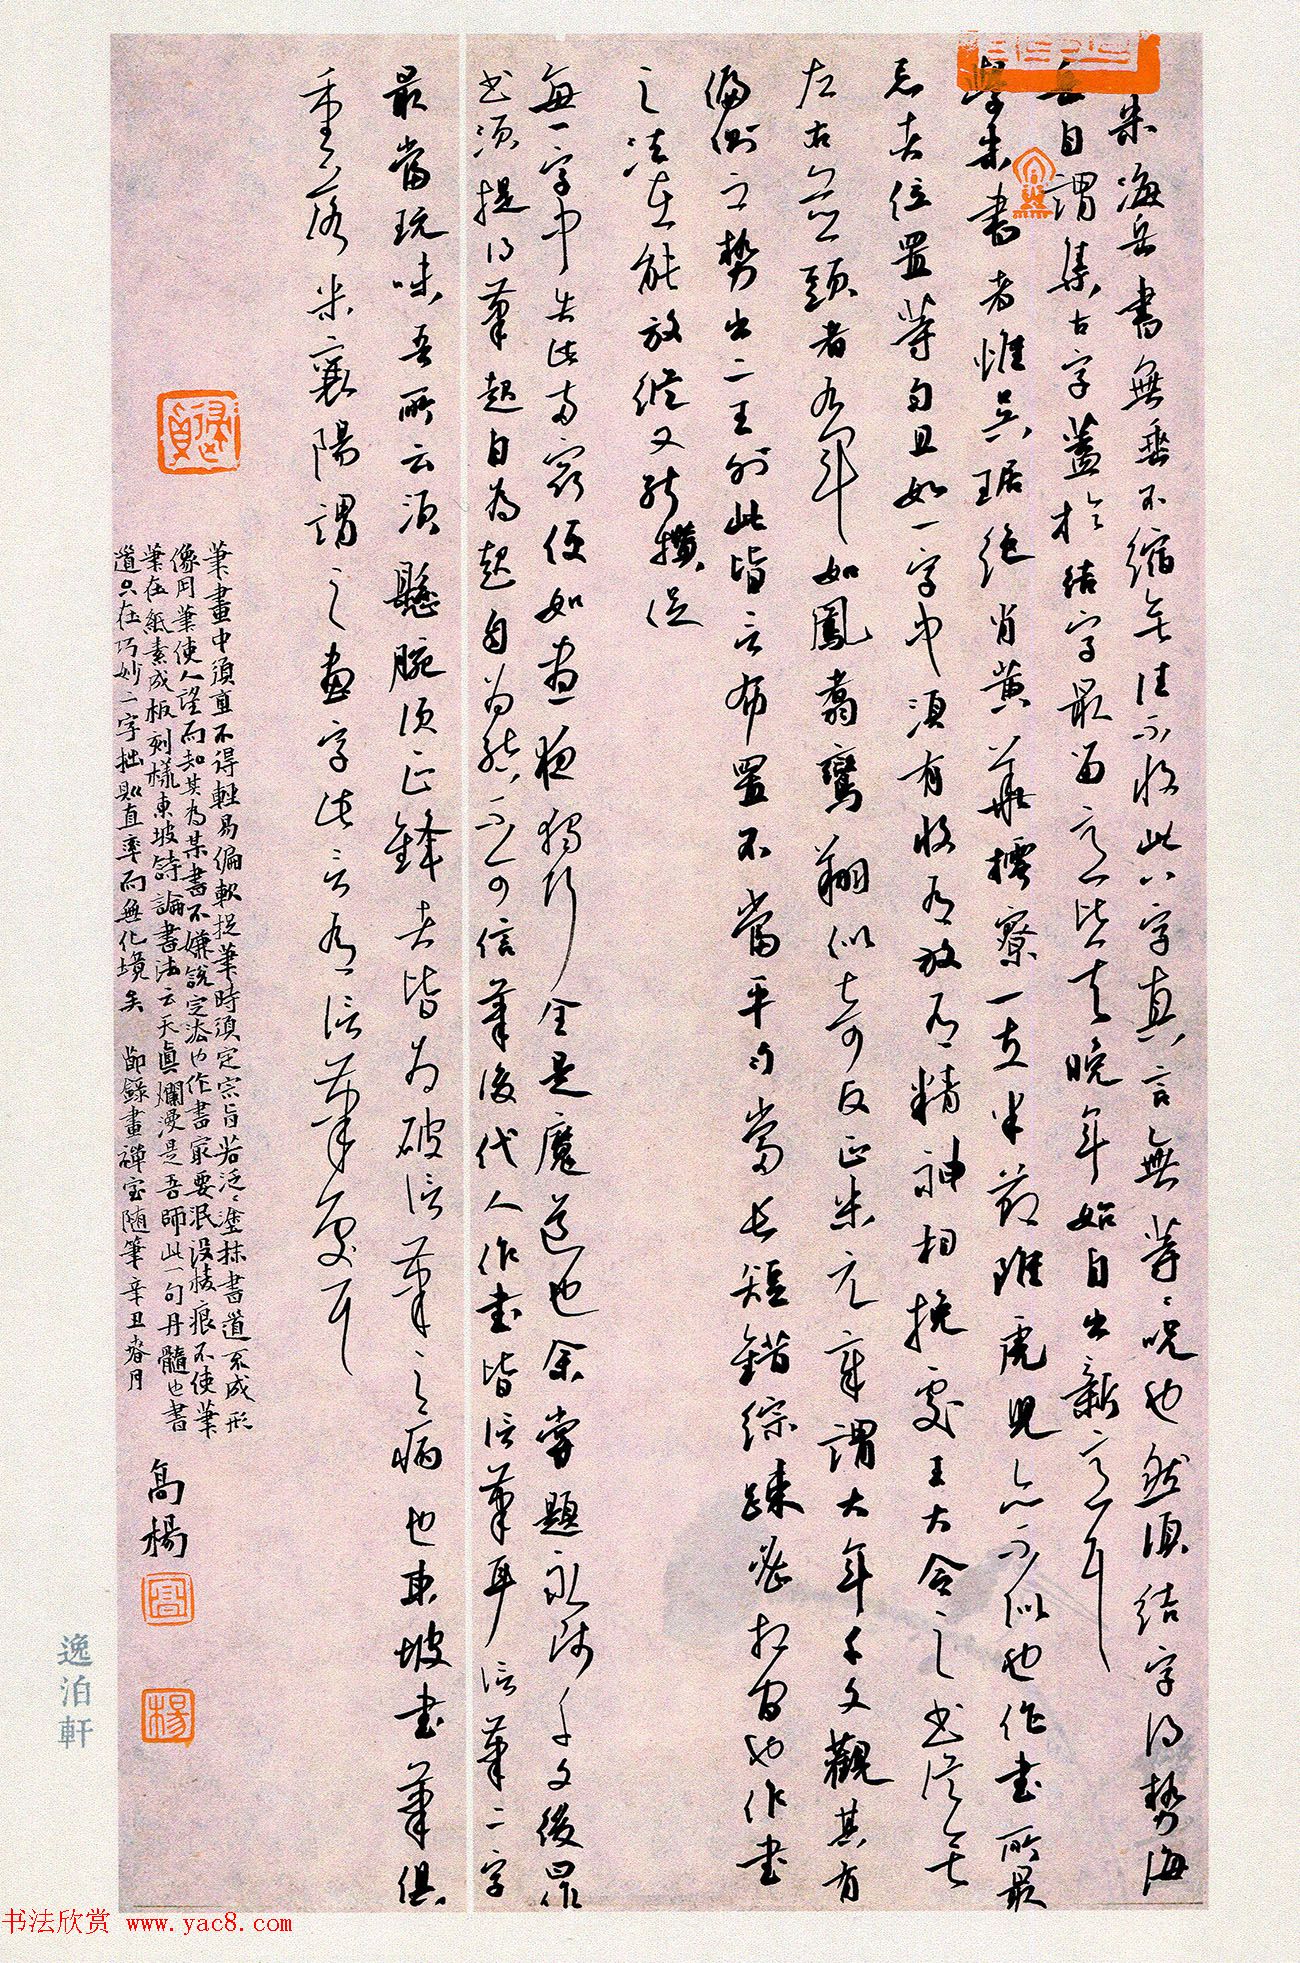 米海岳書無垂不縮無往不收此八字真言無等等呪也然須結字得勢海
岳自謂集古字蓋於結字最留意比其晚年始自出新意耳
學米書者惟吳琚絕肖黃華樗寮一支半節雖虎兒亦不似也作書所最
忌者位置等勻且如一字中須有收有放有精神相挽處王大令之書從無
左右並頭者右軍如鳳翥鸞翔似奇反正米元章謂大年千文觀其有
偏側之勢出二王外此皆言布置不當平勻當長短錯綜疎密相間也作書
之法在能放縱又能攢捉
每一字中失此兩竅便如晝夜獨行全是魔道也余嘗題永師千文後曰作
書須提得筆起自為起自為結不可信筆後代人作書皆信筆耳信筆二字
最當玩味吾所云須懸腕須正鋒者皆為破信筆之病也東坡書筆俱
重落米襄陽謂之畫字此言有信筆處耳
筆畫中須直不得輕易偏軟捉筆時須定宗旨若泛泛塗抹書道不成形
像用筆使人望而知其為某書不嫌說定法也作書最要泯沒棱痕不使筆
筆在紙素成板刻樣東坡詩論書法云天真爛漫是吾師此一句丹髓也書
道只在巧妙二字拙則直率而無化境矣 節錄畫禪室随筆辛丑春月
高楊
高
楊
逸泊軒
书法欣赏 www.yac8.com